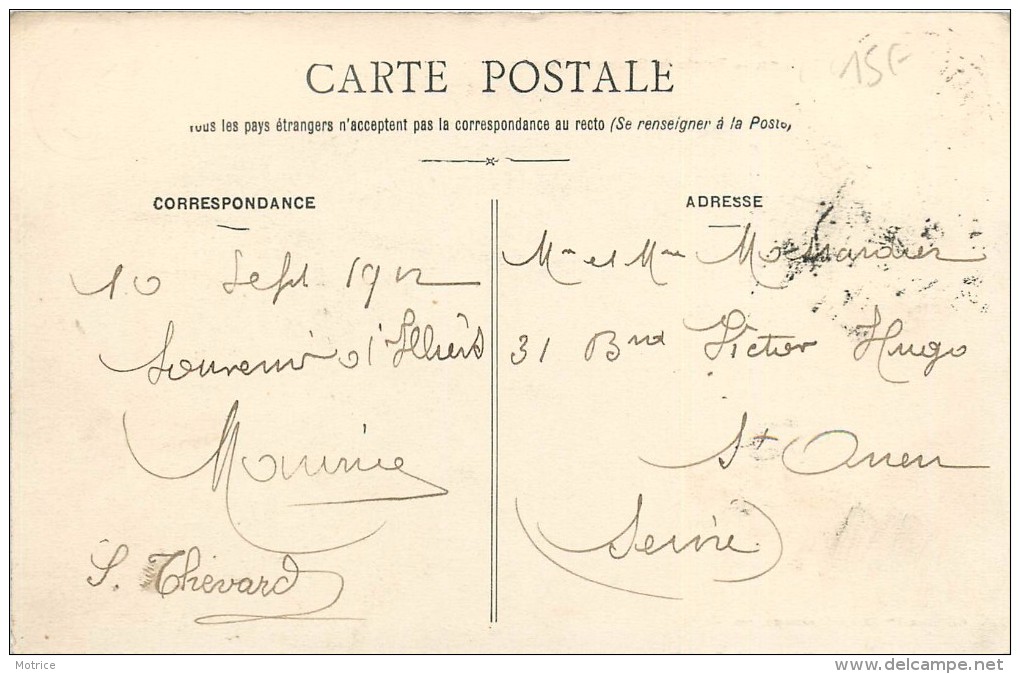 15F
CARTE POSTALE
Tous les pays étrangers n'acceptent pas la correspondance au recto (Se renseigner à la Poste)
CORRESPONDANCE
10 Sept 1912
Souvenir d'Illiers
Maurice
S. Thevard
ADRESSE
Mr et Mme
31 Bard Victor Hugo
St Ouen
Seine
Motrice
www.delcampe.net